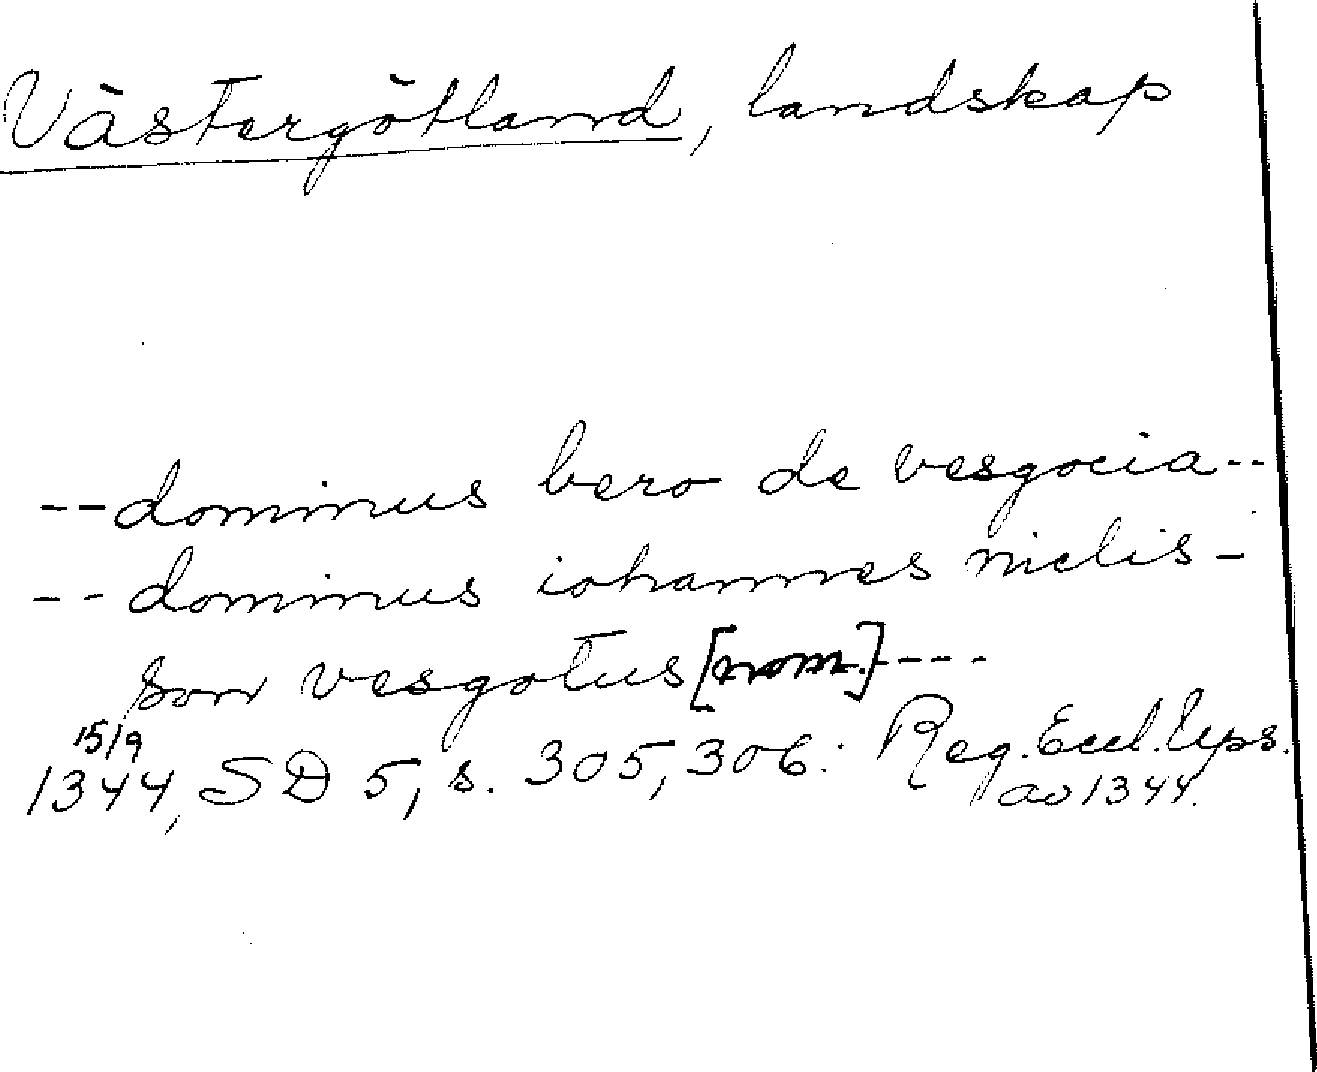 Västergötland, landskap
-- dominus bero de vesgocia --
-- dominus iohannes niclis-
son vesgotus [nom.] ----
15/9
1344, SD 5, s. 305, 306: Reg. Eccl. Ups.
ao 1344.